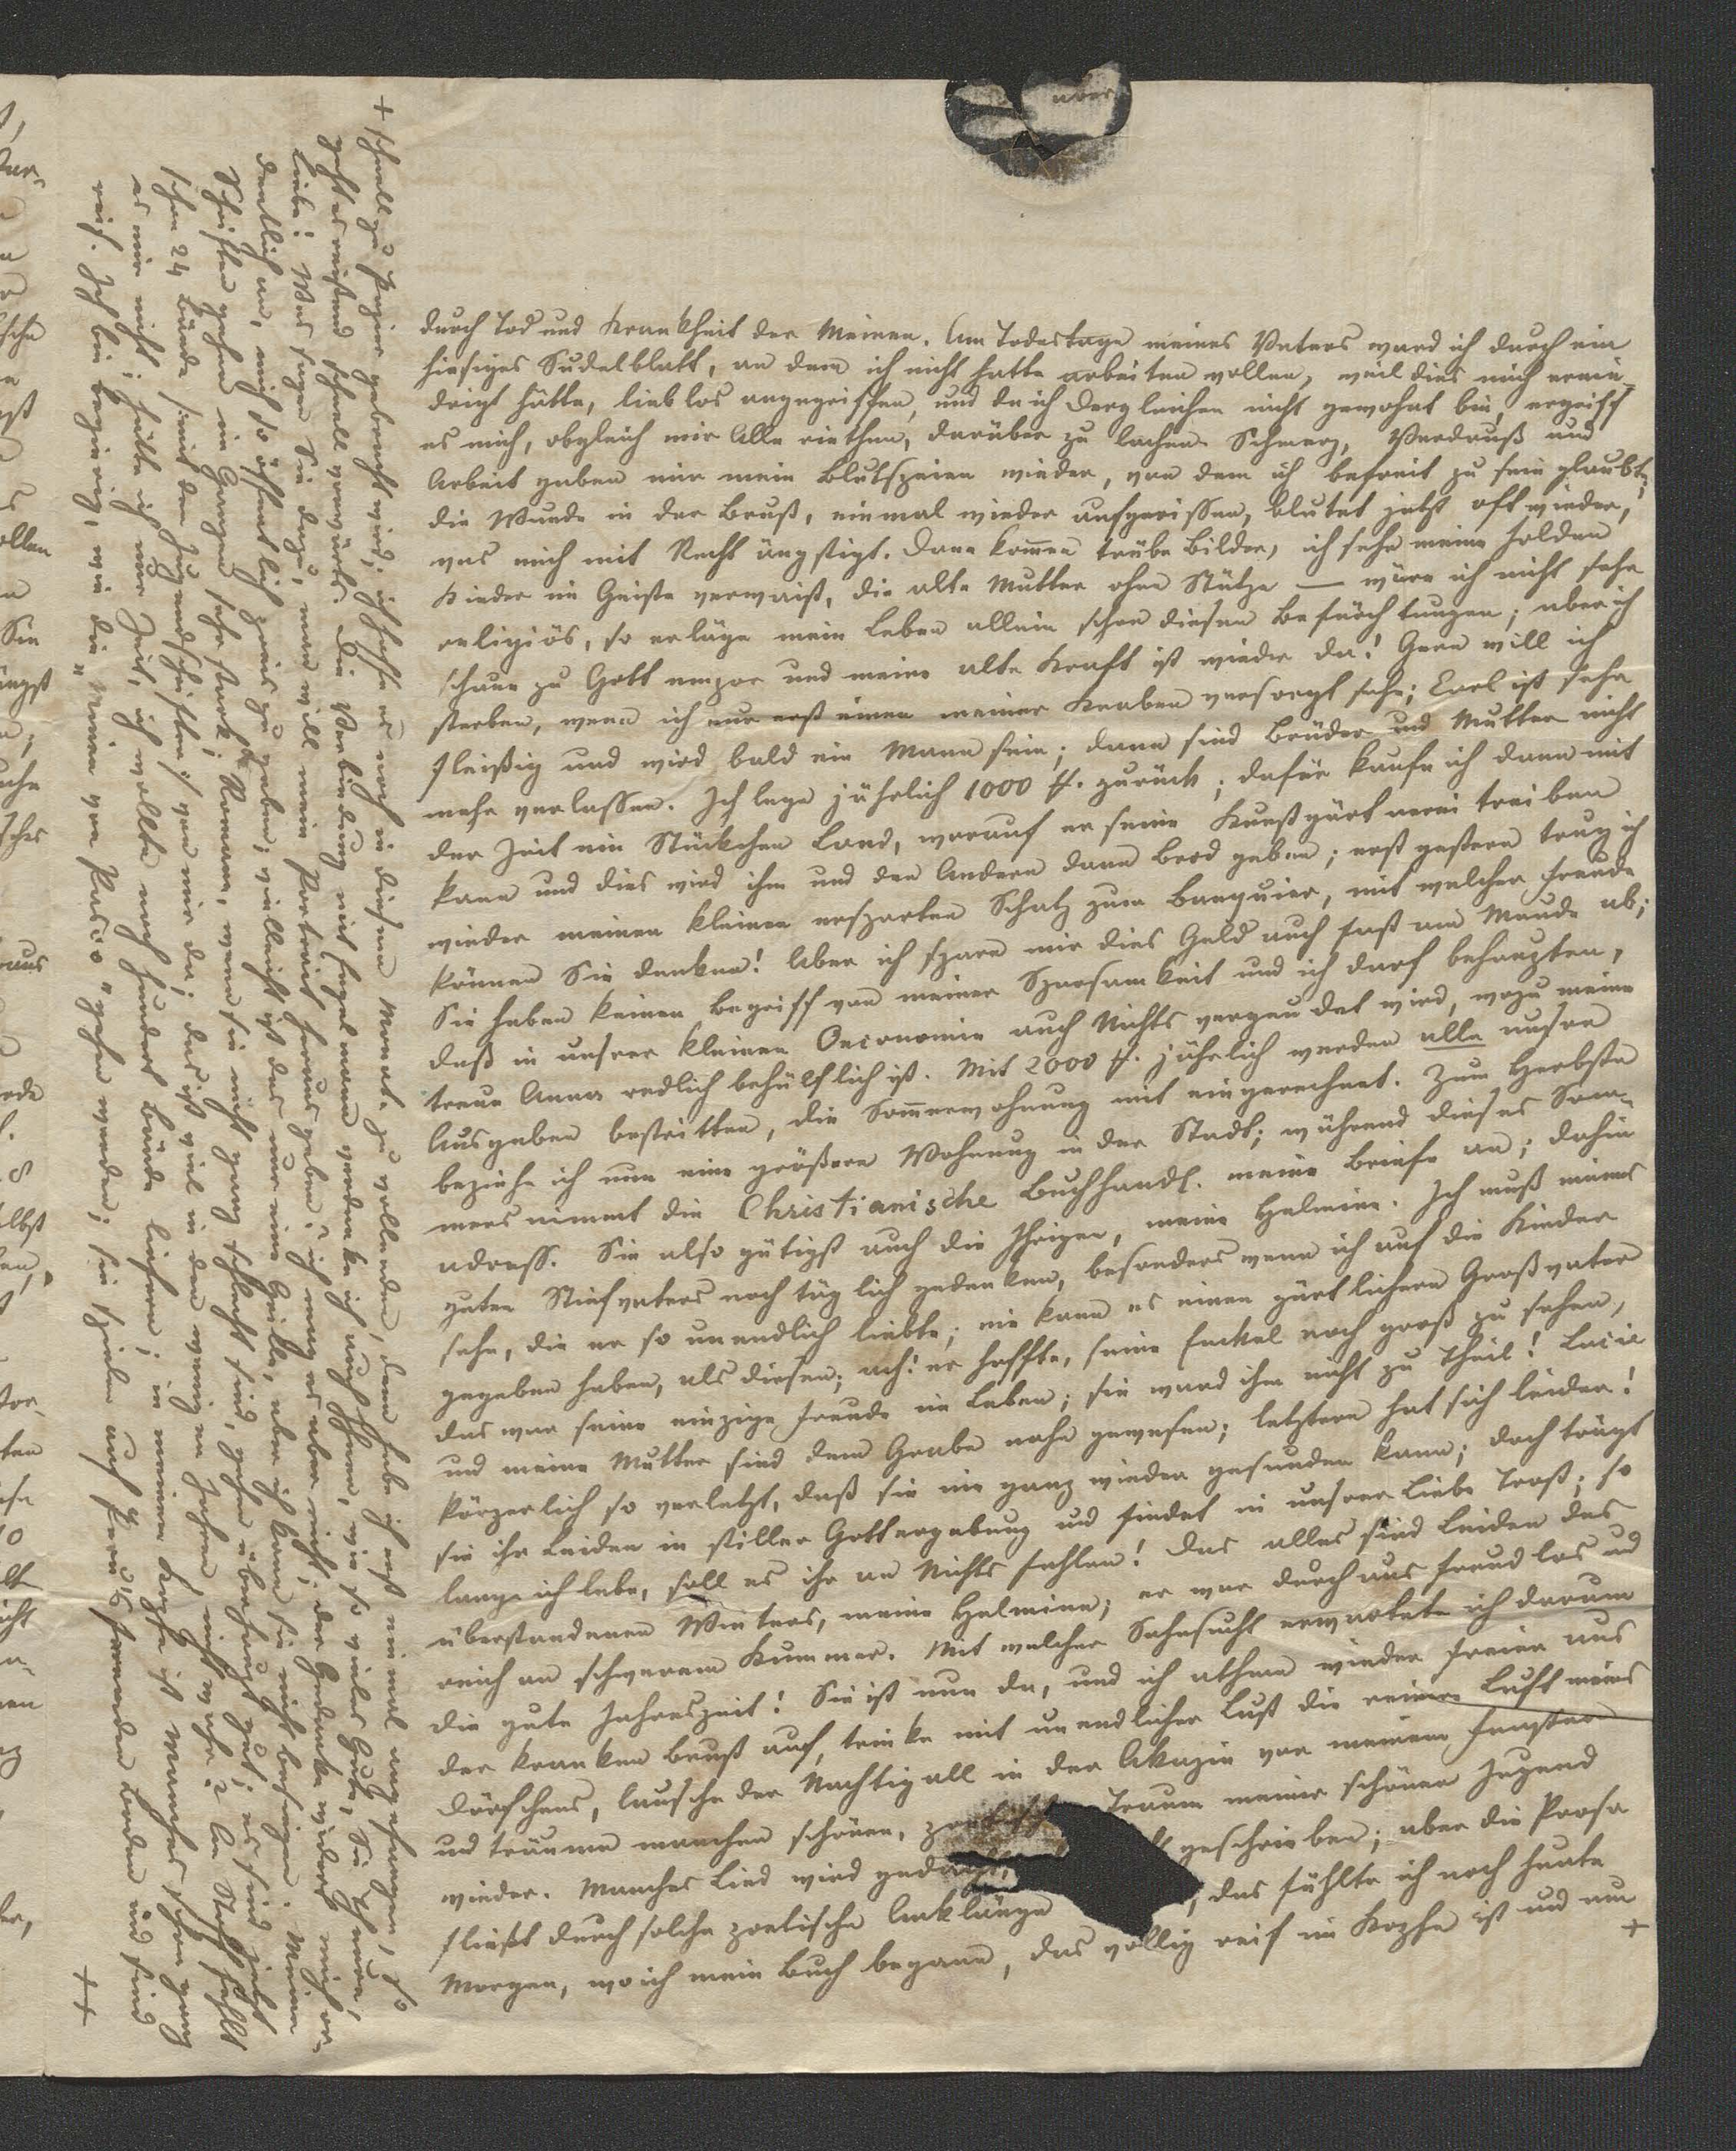 durch Tod und Krankheit der Meinen. Am Todestage meines Vaters ward ich durch ein
hiesiges Sudelblatt, an dem ich nicht hatte arbeiten wollen, weil dies mich ernie-
drigt hätte, lieblos angegriffen, und da ich dergleichen nicht gewohnt bin, ergriff
es mich, obgleich mir Alle riethen, darüber zu lachen. Schmerz, Verdruß und
Arbeit gaben mir mein Blutspeien wieder, von dem ich befreit zu sein glaubte;
die Wunde in der Brust, einmal wieder aufgerissen, blutet jetzt oft wieder,
was mich mit Recht ängstigt. Dann kommen trübe Bilder, ich sehe meine holden
Kinder im Geiste verwaist, die alte Mutter ohne Stütze — wäre ich nicht sehr
religiös, so erläge mein Leben allein schon diesen Befürchtungen; aber ich
schaue zu Gott empor und meine alte Kraft ist wieder da! Gern will ich
sterben, wenn ich nur erst einen meiner Knaben versorgt sehe; Carl ist sehr
fleißig und wird bald ein Mann sein; dann sind Brüder und Mutter nicht
mehr verlassen. Ich lege jährlich 1000 zurück; dafür kaufe ich dann mit
der Zeit ein Stückchen Land, worauf er seine Kunstgärtnerei treiben
kann und dies wird ihm und den Andern dann Brod geben; erst gestern trug ich
wieder meinen kleinen ersparten Schatz zum Banquier, mit welcher Freude
können Sie denken! Aber ich spare mir dies Geld auch fast am Munde ab;
Sie haben keinen Begriff von meiner Sparsamkeit und ich darf behaupten,
daß in unsrer kleinen Oeconomie auch Nichts vergeudet wird, wozu meine
treue Anna redlich behülflich ist. Mit 2000 jährlich werden alle unsre
Ausgaben bestritten, die Sommerwohnung mit eingerechnet. Zum Herbste
beziehe ich nun eine größere Wohnung in der Stadt; während dieses Som-
mers nimmt die Christianische Buchhandl. meine Briefe an; dahin
adress. Sie also gütigst auch die Ihrigen, meine Helmine. Ich muß meines
guten Stiefvaters noch täglich gedenken, besonders wenn ich auf die Kinder
sehe, die er so unendlich liebte; nie kann es einen zärtlichern Großvater
gegeben haben, als diesen; ach! er hoffte, seine Enkel noch groß zu sehen,
das war seine einzige Freude im Leben; sie ward ihm nicht zu Theil! Lucie
und meine Mutter sind dem Grabe nahe gewesen; letztere hat sich leider!
körperlich so verletzt, daß sie nie ganz wieder gesunden kann; doch trägt
sie ihr Leiden in stiller Gottergebung und findet in unsrer Liebe Trost; so
lange ich lebe, soll es ihr an Nichts fehlen! Das alles sind Leiden des
überstandenen Winters, meine Helmine; er war durchaus freudlos und
reich an schwerem Kummer. Mit welcher Sehnsucht erwartete ich darum
die gute Jahreszeit! Sie ist nun da, und ich athme wieder freier aus
der kranken Brust auf, trinke mit unendlicher Lust die reinere Luft meines
Dörfchens, lausche der Nachtigall in der Akazie vor meinem Fenster
und träume manchen schönen, Traum meiner schönen Jugend
wieder. Manches Lied wird geschrieben; aber die Prosa
fließt durch solche poetische Anklänge , das fühlte ich noch heute
Morgen, wo ich mein Buch begann, das völlig reif im Kopfe ist und nun +
+ schnell zu Papier gebracht wird; ich hoffe es noch in diesem Monat zu vollenden, denn habe ich erst einmal angefangen, so
geht es reißend schnell vorwärts. Die Verbindung mit Engelmann verdanke ich auch Ihnen, wie so vieles Gute, Sie Theure,
Liebe! Was sagen Sie dazu, man will mein Portrait herausgeben? ich mag es aber nicht; der Gedanke widert mich or-
dentlich an, mich so öffentlich preis zu geben; vielleicht ist das nur eine Grille, aber ich kann sie nicht besiegen. Meine
Schriften gehen im Ganzen sehr stark; Romane, wenn sie nicht ganz schlecht sind, gehen überhaupt gut; es sind jetzt
schon 24 Bände (mit den Jugendschriften) von mir da; das ist viel in den wenigen Jahren, nicht wahr? An Stoff fehlt
es mir nicht; hätte ich nur Zeit, ich wollte noch hundert Bände liefern; in meinem Kopfe ist Manches schon ganz
reif. Ich bin begierig, wie die " gehen werden; sie spielen auf Peru's fremdem Boden und sind
++